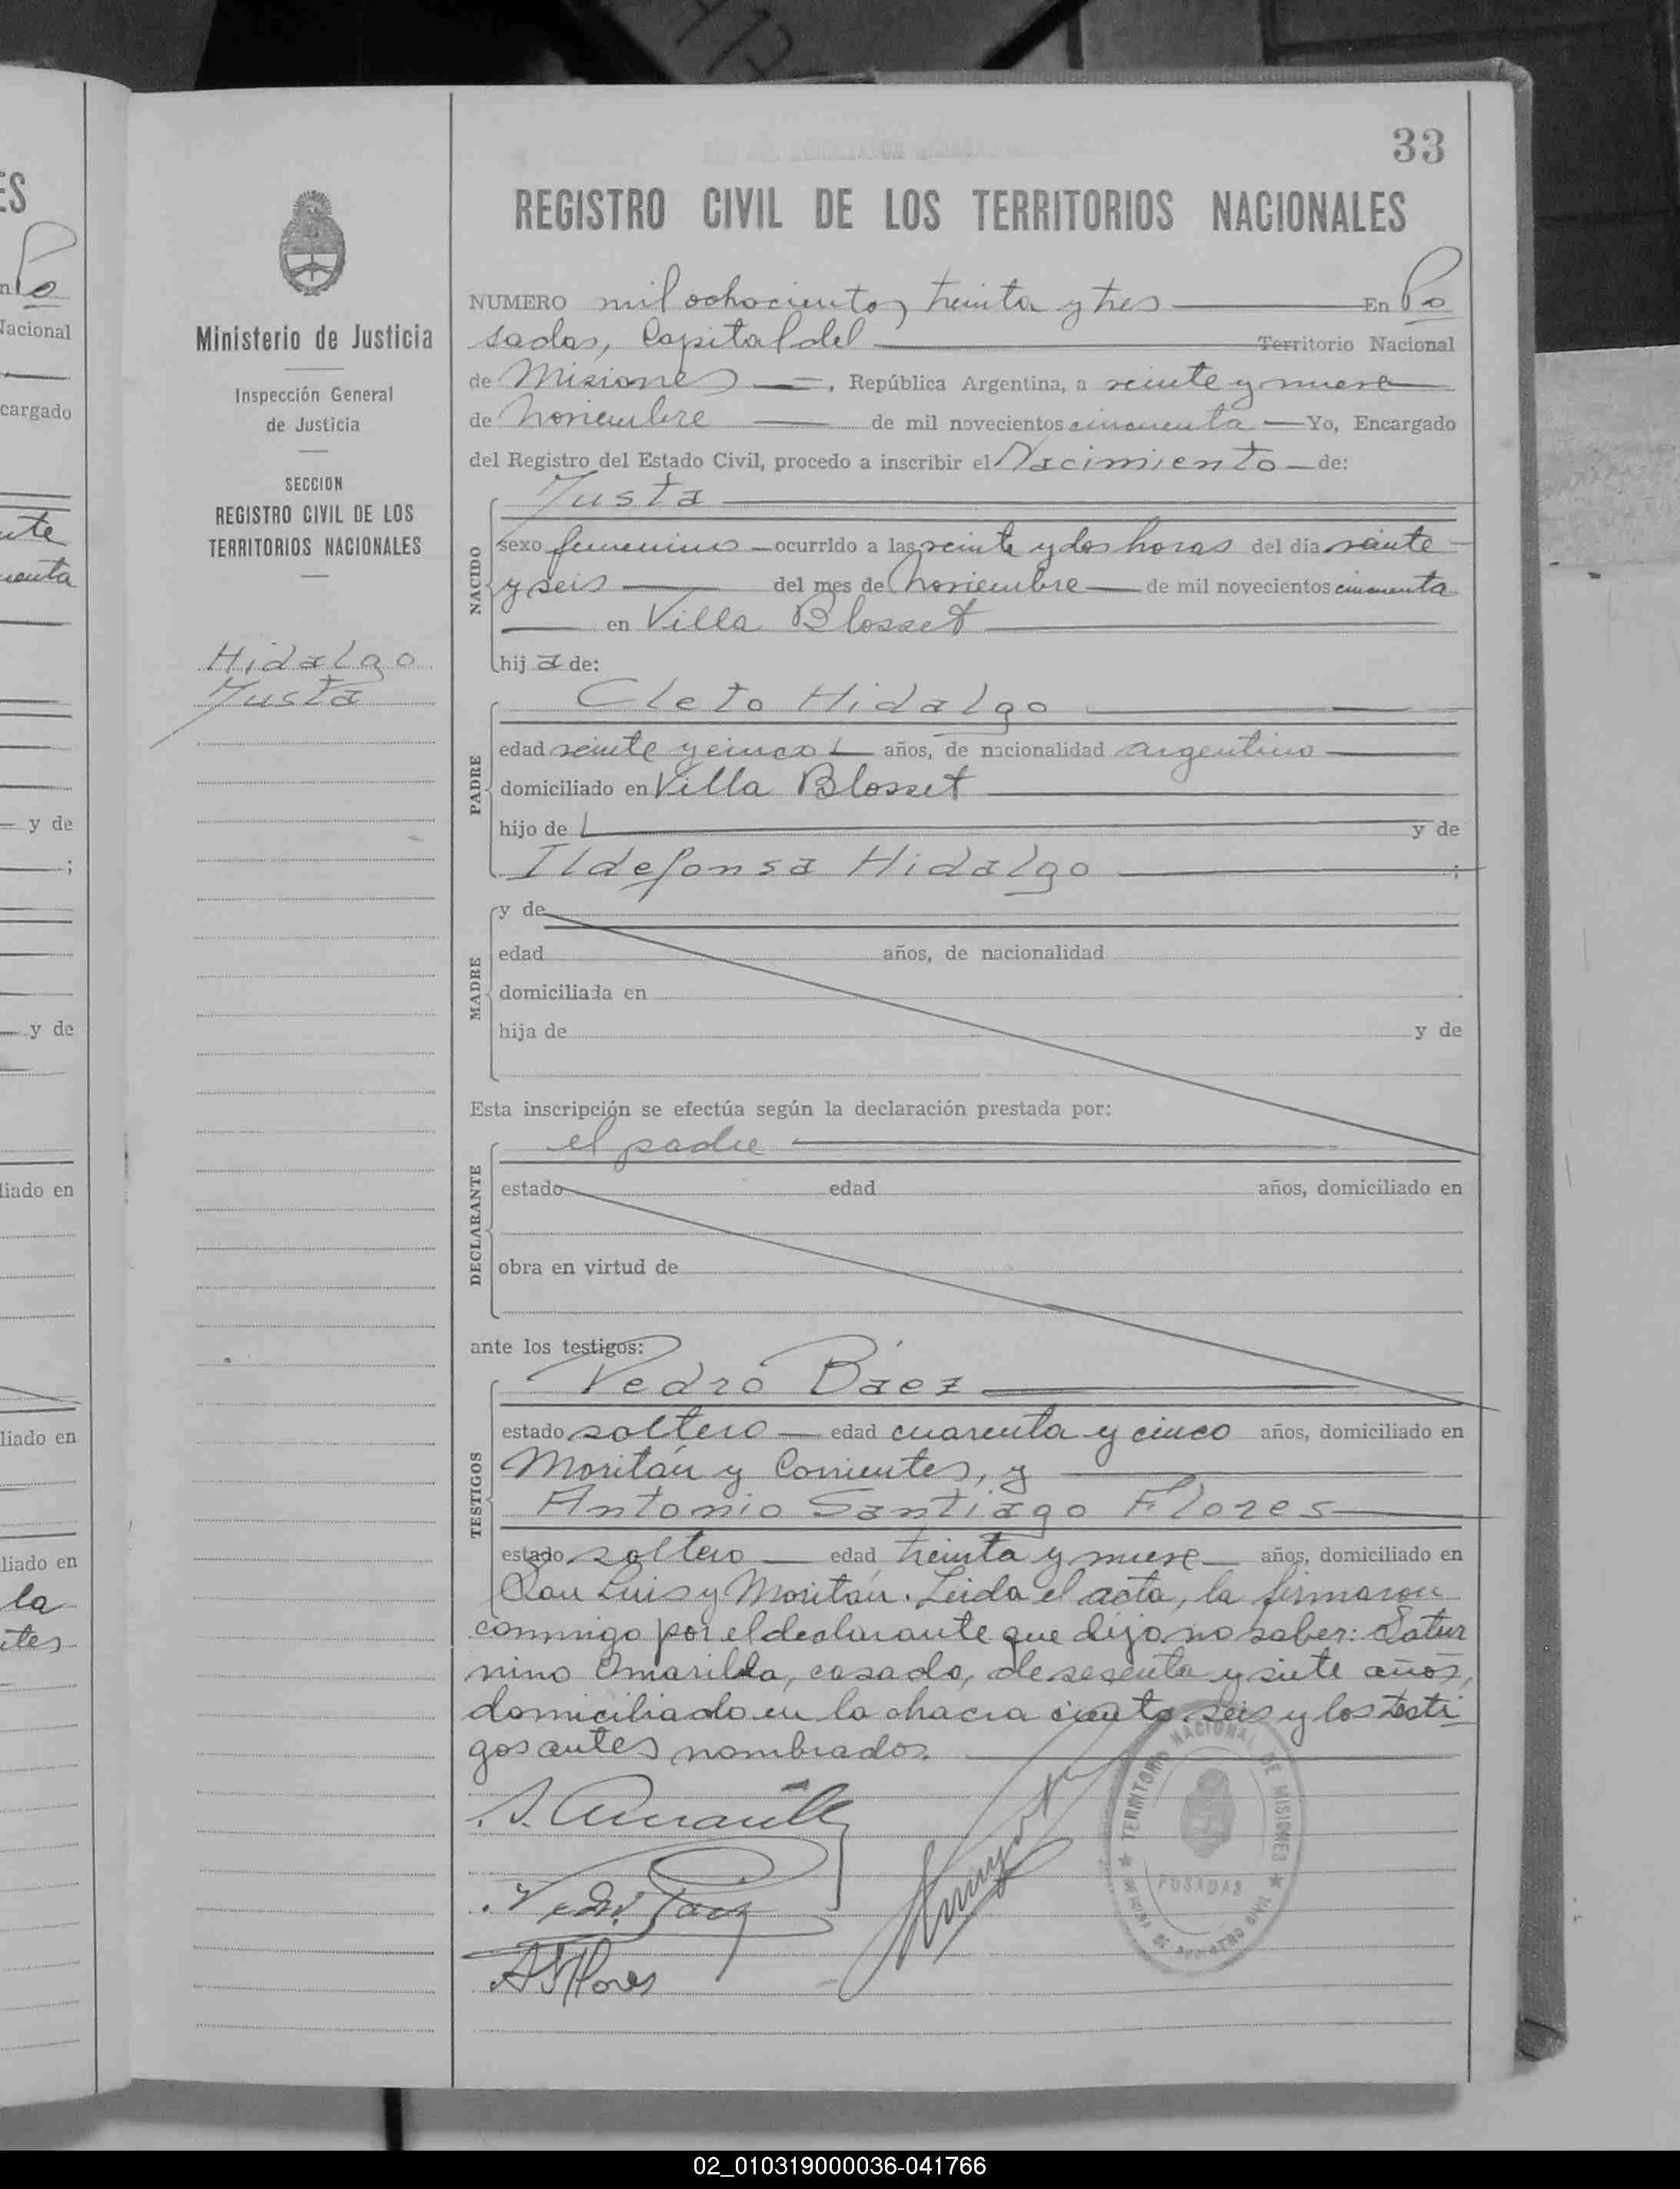 33
REGISTRO CIVIL DE LOS TERRITORIOS NACIONALES
Ministerio de Justicia
Inspección General
de Justicia
SECCION
REGISTRO CIVIL DE LOS
TERRITORIOS NACIONALES
Hidalgo
Justa
NUMERO mil ochocientos treinta y tres En Po
sadas, Capital del Territorio Nacional
de Misiones, República Argentina, a veinte y nueve
de Noviembre de mil novecientos cincuenta Yo, Encargado
del Registro del Estado Civil, procedo a inscribir el Nacimiento de:
NACIDO
Justa
sexo femenino ocurrido a las veinte y dos horas del día veinte
y seis del mes de Noviembre de mil novecientos cincuenta
en Villa Blosset
hija de:
PADRE
Cleto Hidalgo
edad veinte y cinco años, de nacionalidad argentino
domiciliado en Villa Blosset
hijo de y de
Ildefonsa Hidalgo ;
MADRE
y de
edad años, de nacionalidad
domiciliada en
hija de y de
Esta inscripción se efectúa según la declaración prestada por:
DECLARANTE
el padre
estado edad años, domiciliado en
obra en virtud de
ante los testigos:
TESTIGOS
Pedro Báez
estado soltero edad cuarenta y cinco años, domiciliado en
Moritán y Corrientes, y
Antonio Santiago Flores
estado soltero edad treinta y nueve años, domiciliado en
San Luis y Moritán. Leida el acta, la firmaron
conmigo por el declarante que dijo no saber: Satur
nino Amarilla, casado, de sesenta y siete años,
domiciliado en la chacra ciento seis y los testi
gos antes nombrados.
S. Amarilla
Pedro Baez
A S Flores
TERRITORIO NACIONAL DE MISIONES
POSADAS
02_010319000036-041766